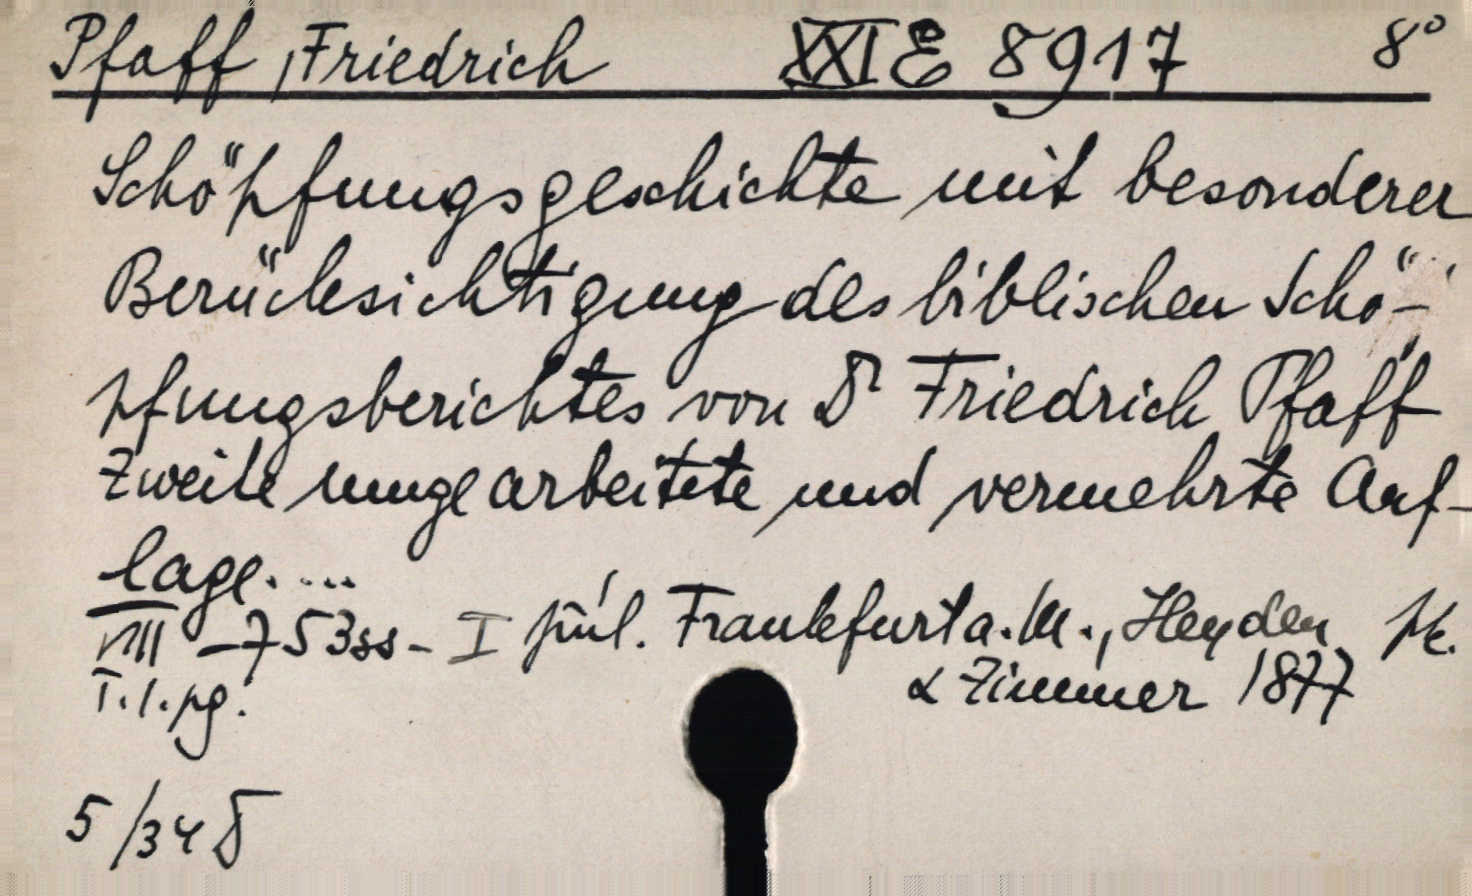 Pfaff, Friedrich XXI E 8917 8°
Schöpfungsgeschichte mit besonderer
Berücksichtigung des biblischen Schö-
pfungsberichtes von Dr Friedrich Pfaff
Zweite umgearbeitete und vermehrte Auf-
lage....
VIII - 753 ss - I příl. Frankfurt a. M., Heyden
& Zimmer 1877
T. l. pg.
5/34